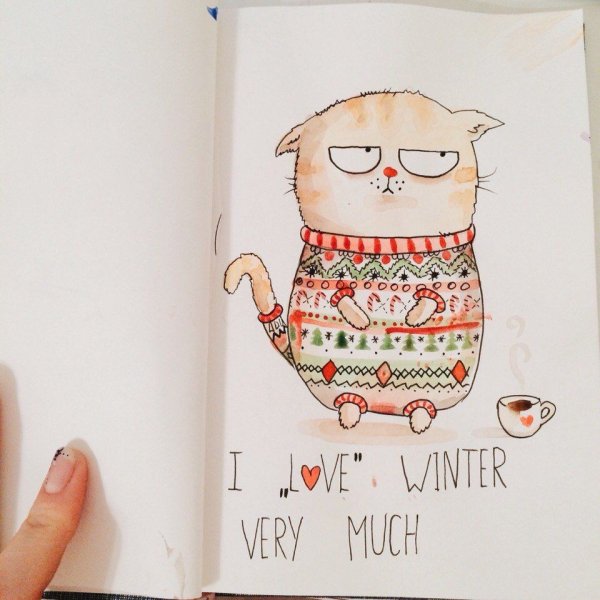 I „L♥VE" WINTER
VERY MUCH